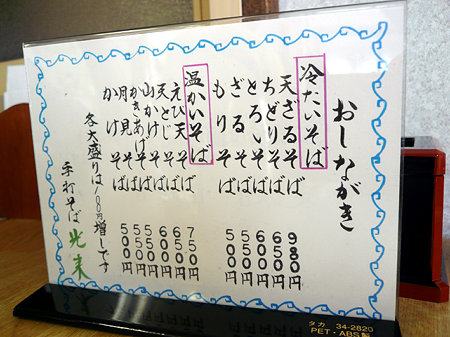 おしながき
冷たいそば
天ざるそば 980円
ちどりそば 650円
とろろそば 600円
ざるそば 550円
もりそば 500円
温かいそば
えび天そば 750円
天とじそば 650円
山かけそば 600円
かきあげそば 550円
月見そば 550円
かけそば 500円
各大盛りは100円増しです
手打そば 光来
タカ 34-2820
PET・ABS製